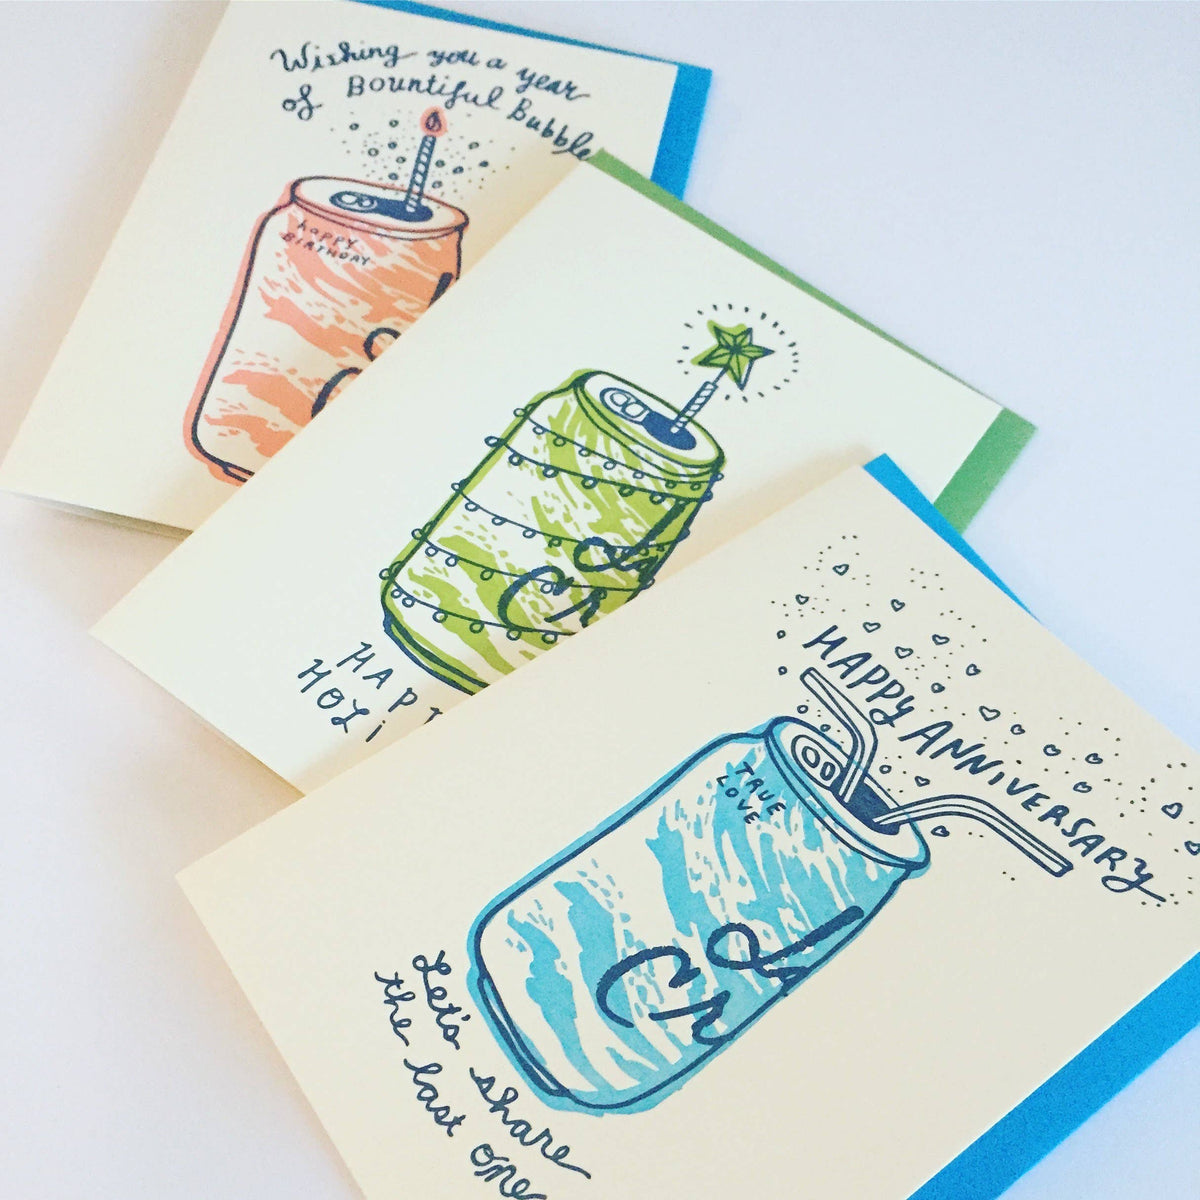 Wishing you a year
of Bountiful Bubble
happy
BIRTHDAY
HAPP
HOLi
La
Cr
HAPPY ANNIVERSARY
TRUE
LOVE
La
Cr
Let's share
the last one